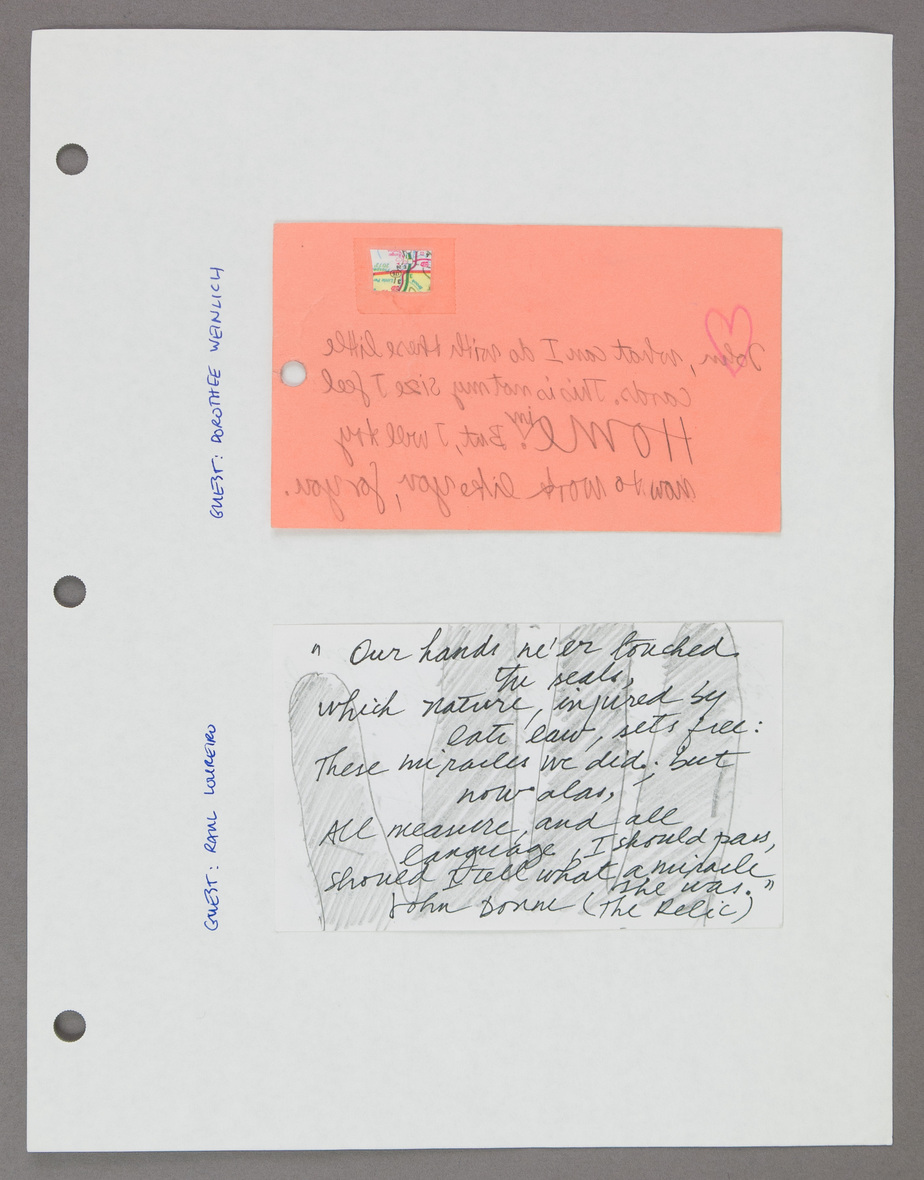 GUEST: DOROTHEE WEINLICH
John, what can I do with these little
cards. This is not my size I feel
HOME in. But, I will try
now to work like you, for you.
GUEST: RAUL LOUREIRO
" Our hands ne'er touched
the seals,
which nature, injured by
late law, sets free:
These miracles we did; but
now alas,
All measure, and all
language, I should pass,
should I tell what a miracle
she was."
John Donne (The Relic)